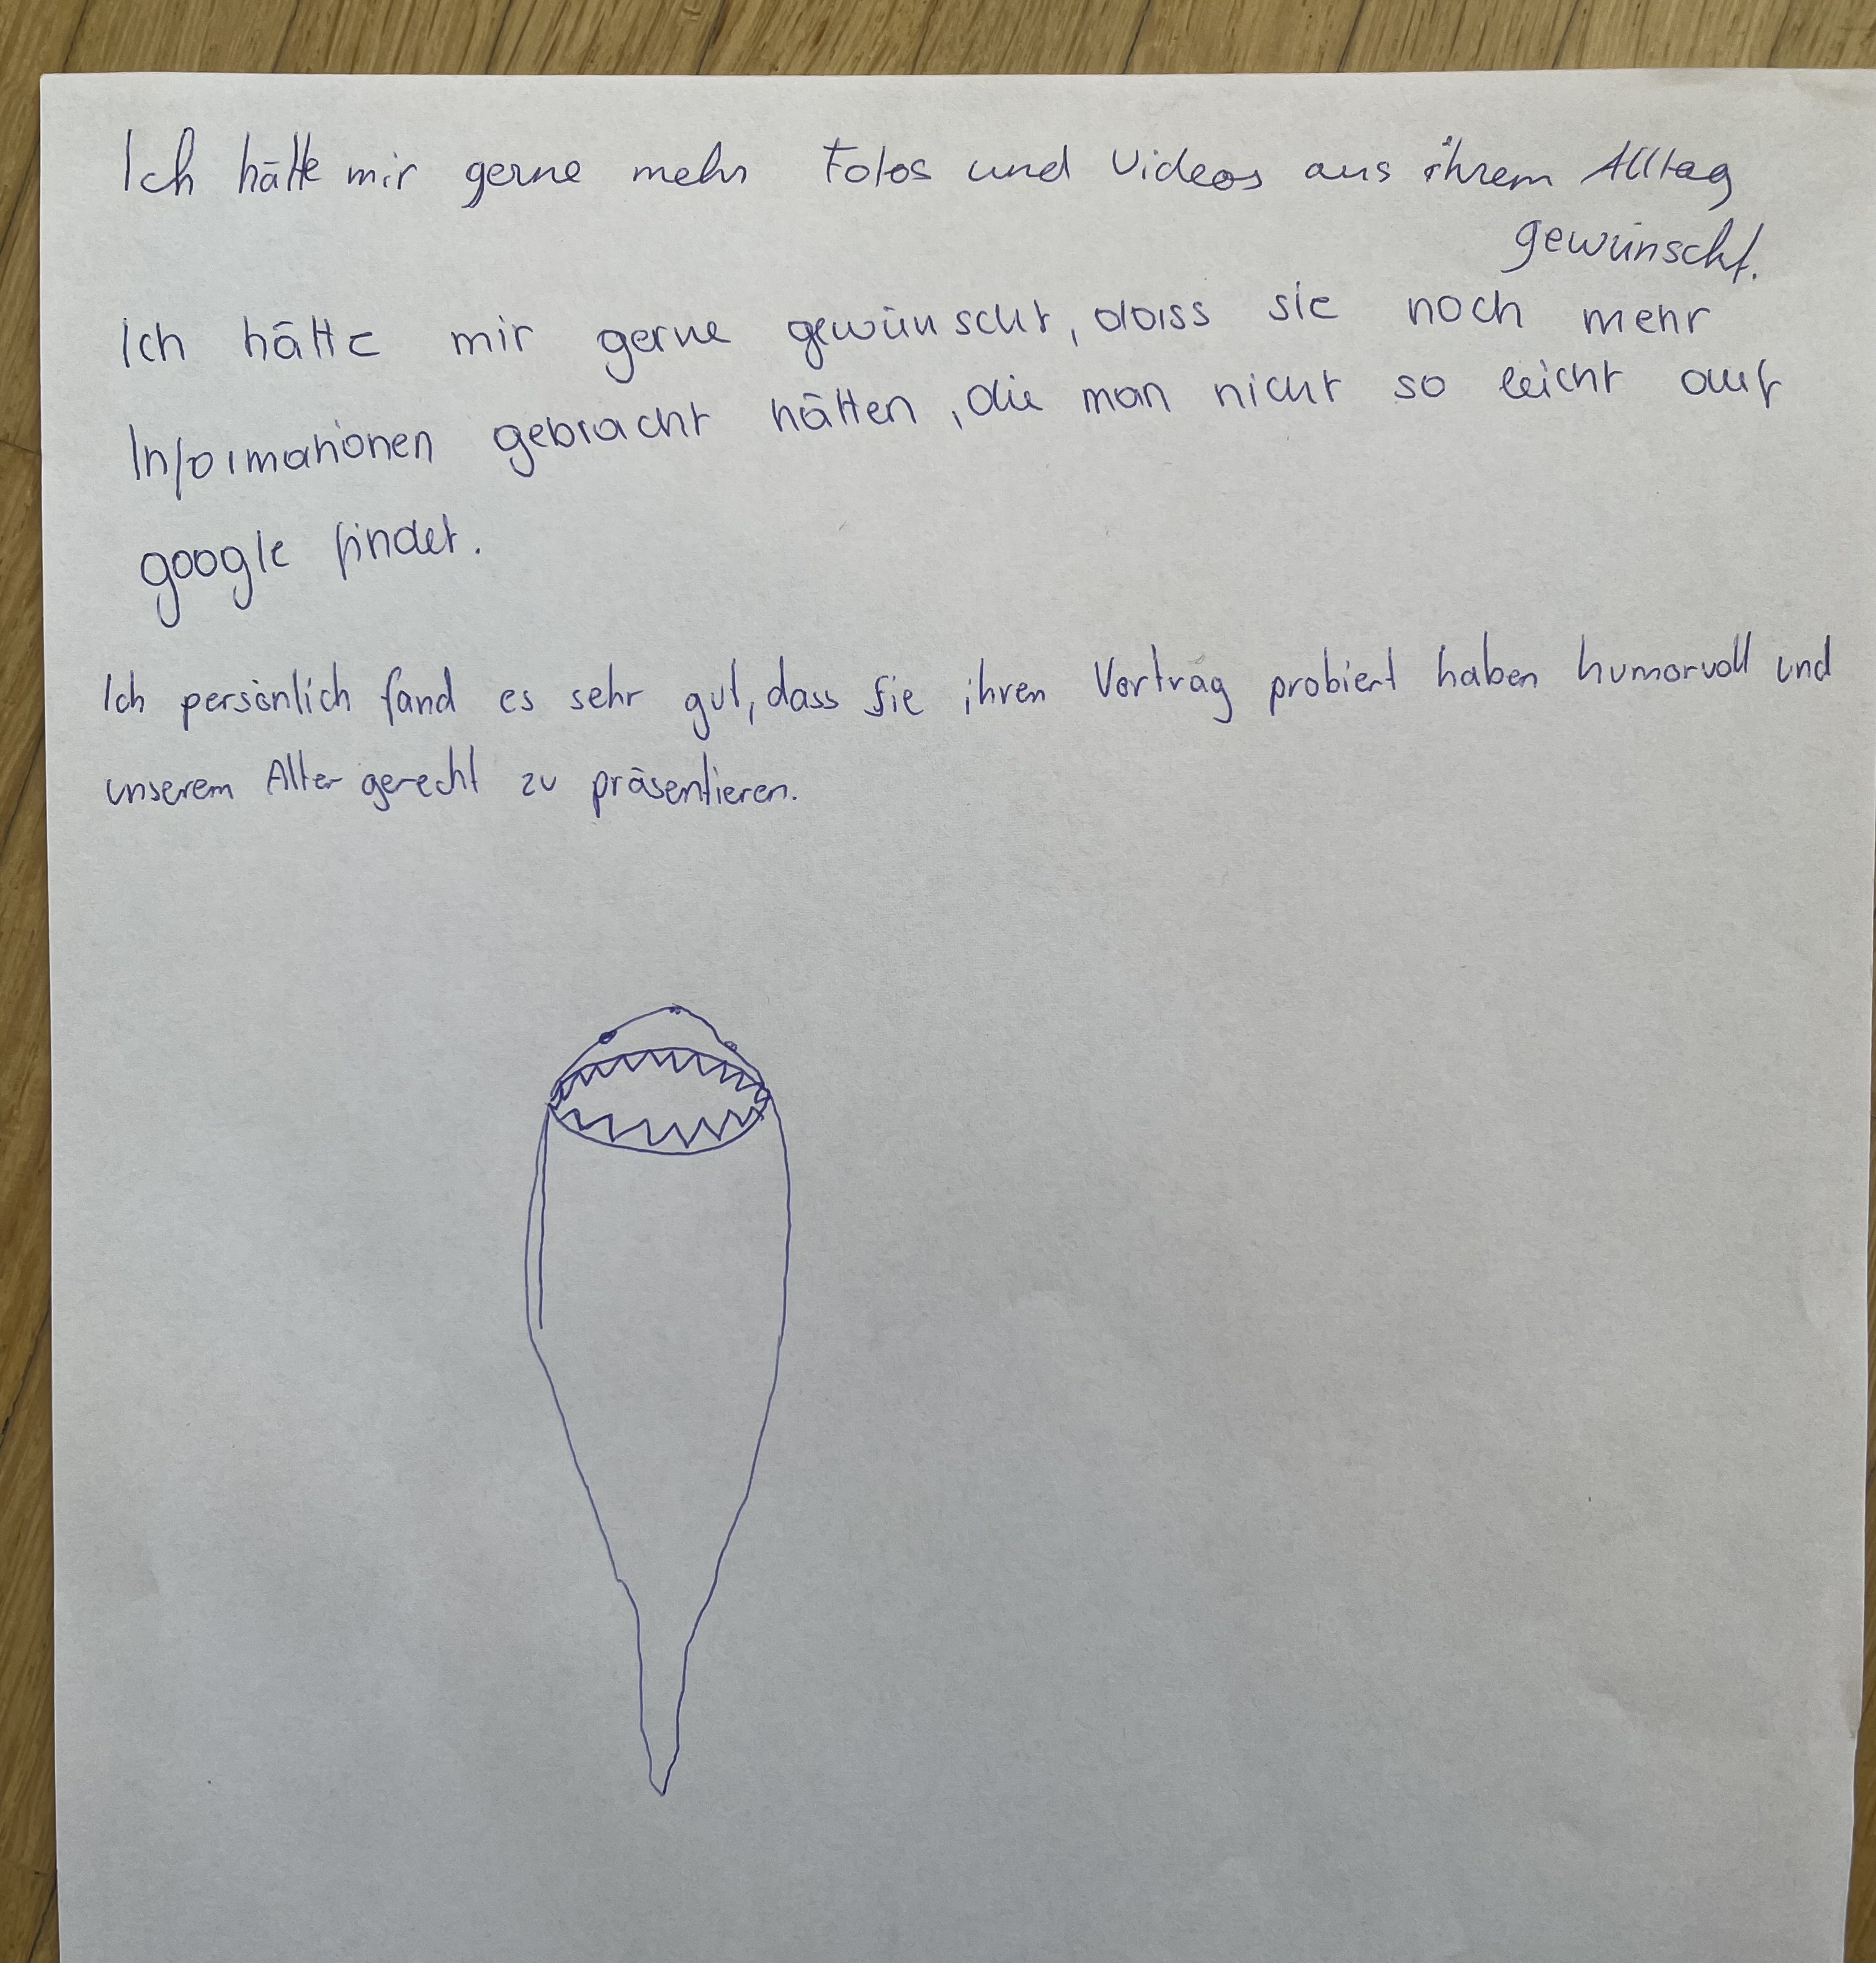 Ich hätte mir gerne mehr Fotos und Videos aus ihrem Alltag
gewünscht.
Ich hätte mir gerne gewünscht, dass sie noch mehr
Informationen gebracht hätten, die man nicht so leicht auf
google findet.
Ich persönlich fand es sehr gut, dass Sie ihren Vortrag probiert haben humorvoll und
unserem Alter gerecht zu präsentieren.